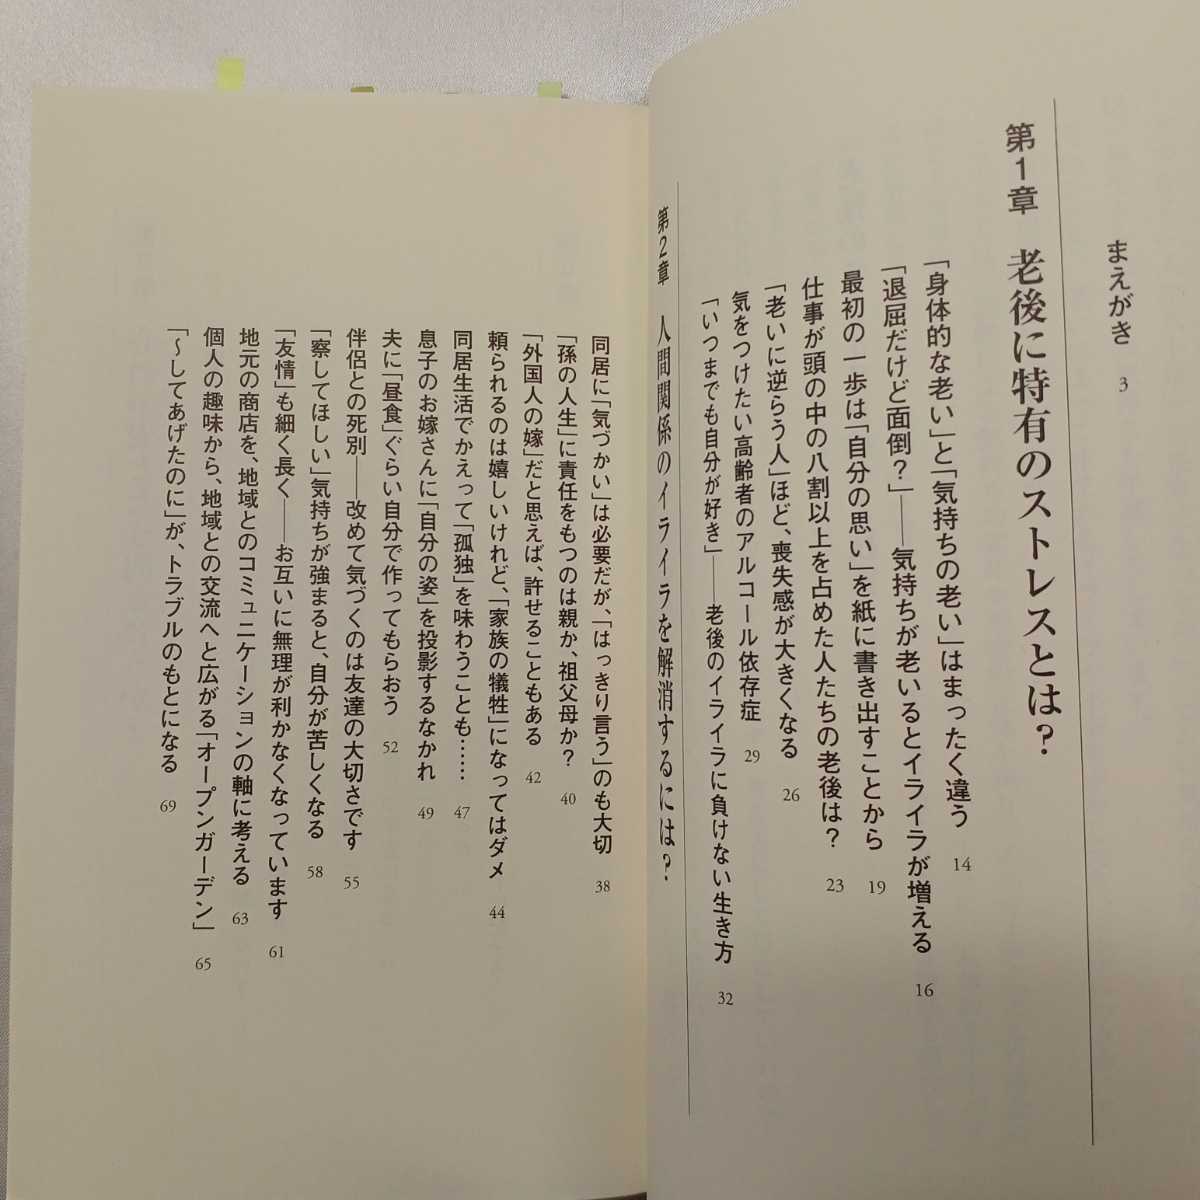 まえがき 3
第1章 老後に特有のストレスとは？
「身体的な老い」と「気持ちの老い」はまったく違う 14
「退屈だけど面倒？」――気持ちが老いるとイライラが増える 16
最初の一歩は「自分の思い」を紙に書き出すことから 19
仕事が頭の中の八割以上を占めた人たちの老後は？ 23
「老いに逆らう人」ほど、喪失感が大きくなる 26
気をつけたい高齢者のアルコール依存症 29
「いつまでも自分が好き」――老後のイライラに負けない生き方 32
第2章 人間関係のイライラを解消するには？
同居に「気づかい」は必要だが、「はっきり言う」のも大切 38
「孫の人生」に責任をもつのは親か、祖父母か？ 40
「外国人の嫁」だと思えば、許せることもある 42
頼られるのは嬉しいけれど、「家族の犠牲」になってはダメ 44
同居生活でかえって「孤独」を味わうことも…… 47
息子のお嫁さんに「自分の姿」を投影するなかれ 49
夫に「昼食」ぐらい自分で作ってもらおう 52
伴侶との死別――改めて気づくのは友達の大切さです 55
「察してほしい」気持ちが強まると、自分が苦しくなる 58
「友情」も細く長く――お互いに無理が利かなくなっています 61
地元の商店を、地域とのコミュニケーションの軸に考える 63
個人の趣味から、地域との交流へと広がる「オープンガーデン」 65
「～してあげたのに」が、トラブルのもとになる 69